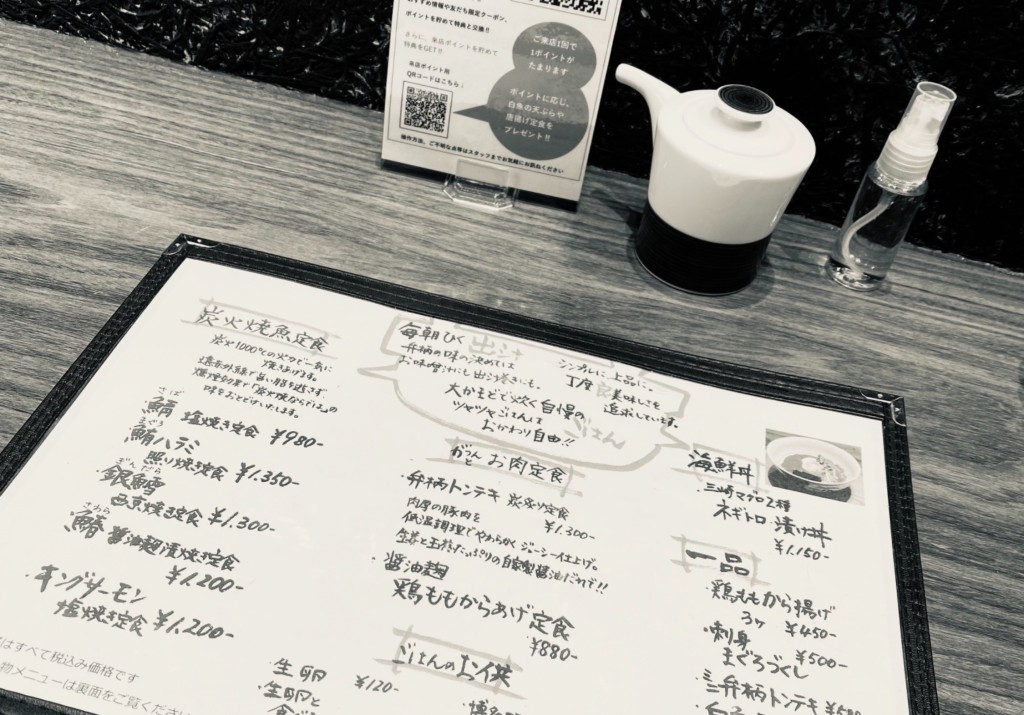 おすすめ情報や友だち限定クーポン、
ポイントを貯めて特典と交換!!
さらに、来店ポイントを貯めて
特典をGET!!
来店ポイント用
QRコードはこちら：
ご来店1回で
1ポイントが
たまります
ポイントに応じ、
白魚の天ぷらや
唐揚げ定食を
プレゼント!!
操作方法、ご不明な点等はスタッフまでお気軽にお訊ねください
炭火焼魚定食
炭火1000℃の火力で一気に
焼きあげます。
味をおとどけいたします。
さば
鯖 塩焼き定食 ¥980-
まぐろ
鮪ハラミ
照り焼き定食 ¥1.350-
ぎんだら
銀鱈
西京焼き定食 ¥1.300-
さわら
鰆 醤油麹漬焼き定食
¥1.200-
・キングサーモン
塩焼き定食 ¥1.200-
はすべて税込み価格です
物メニューは裏面をご覧ください
出汁
毎朝ひく
弁柄の味の決めては
お味噌汁にも出汁巻きにも。
シンプルに、上品に、
丁度美味しさを
追求しています。
定食
大かまどで炊く自慢の
ツヤツヤごはんは
おかわり自由!!
ごはん
がつんと お肉定食
・弁柄トンテキ 炭炙り定食
¥1.300-
肉厚の豚肉を
低温調理でやわらかく ジューシィ仕上げ。
生姜と玉葱たっぷりの自家製醤油だれで!!
・醤油麹
鶏ももからあげ定食
¥880-
ごはんのお供
生卵 ¥120-
・生卵と
海鮮丼
・三崎マグロ2種
ネギトロ・漬け丼
¥1.150-
一品
・鶏ももから揚げ
3ヶ ¥450-
・刺身 ¥500-
まぐろづくし
・ミニ弁柄トンテキ